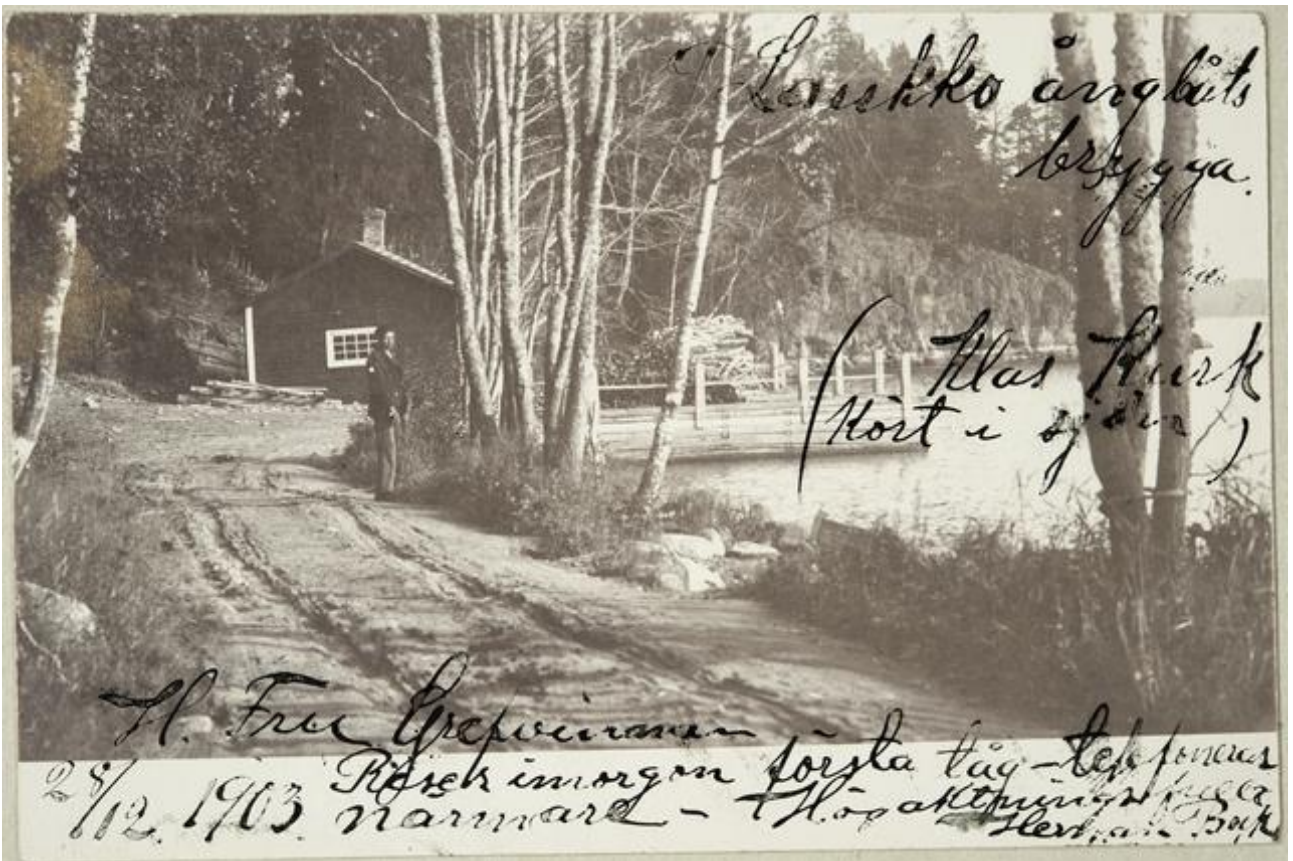 Laukko ångbåts
brygga.
(Klas Kurk
kört i sjön)
H. Fru Grefvinnan
28/12. 1903. Reser imorgon första tåg - telefonerar
närmare - Högaktningsfullt
Herman